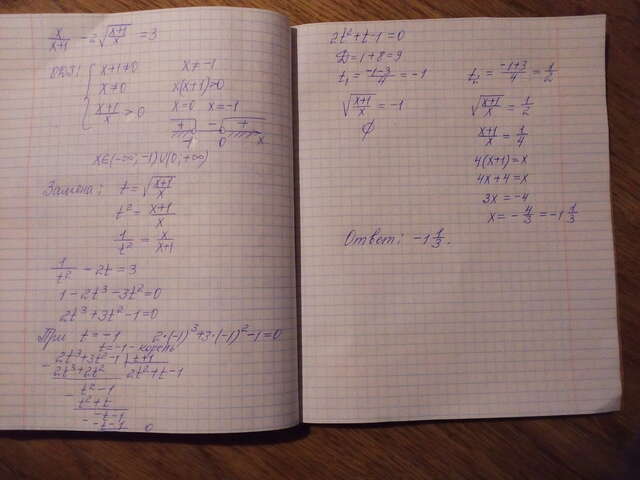 x/(x+1) - 2√((x+1)/x) = 3
ОДЗ: { x+1≠0 x≠-1
x≠0 x(x+1)>0
(x+1)/x > 0 x=0 x=-1
+ - +
-1 0 x
x∈(-∞;-1)∪(0;+∞)
Замена: t = √((x+1)/x)
t² = (x+1)/x
1/t² = x/(x+1)
1/t² - 2t = 3
1-2t³-3t²=0
2t³+3t²-1=0
При t=-1 2·(-1)³+3·(-1)²-1=0
t=-1 - корень
2t³+3t²-1 | t+1
2t³+2t² 2t²+t-1
t²-1
t²+t
-t-1
-t-1
0
2t²+t-1=0
D=1+8=9
t₁ = (-1-3)/4 = -1 t₂ = (-1+3)/4 = 1/2
√((x+1)/x) = -1 √((x+1)/x) = 1/2
∅ (x+1)/x = 1/4
4(x+1)=x
4x+4=x
3x=-4
x = -4/3 = -1 1/3
Ответ: -1 1/3.